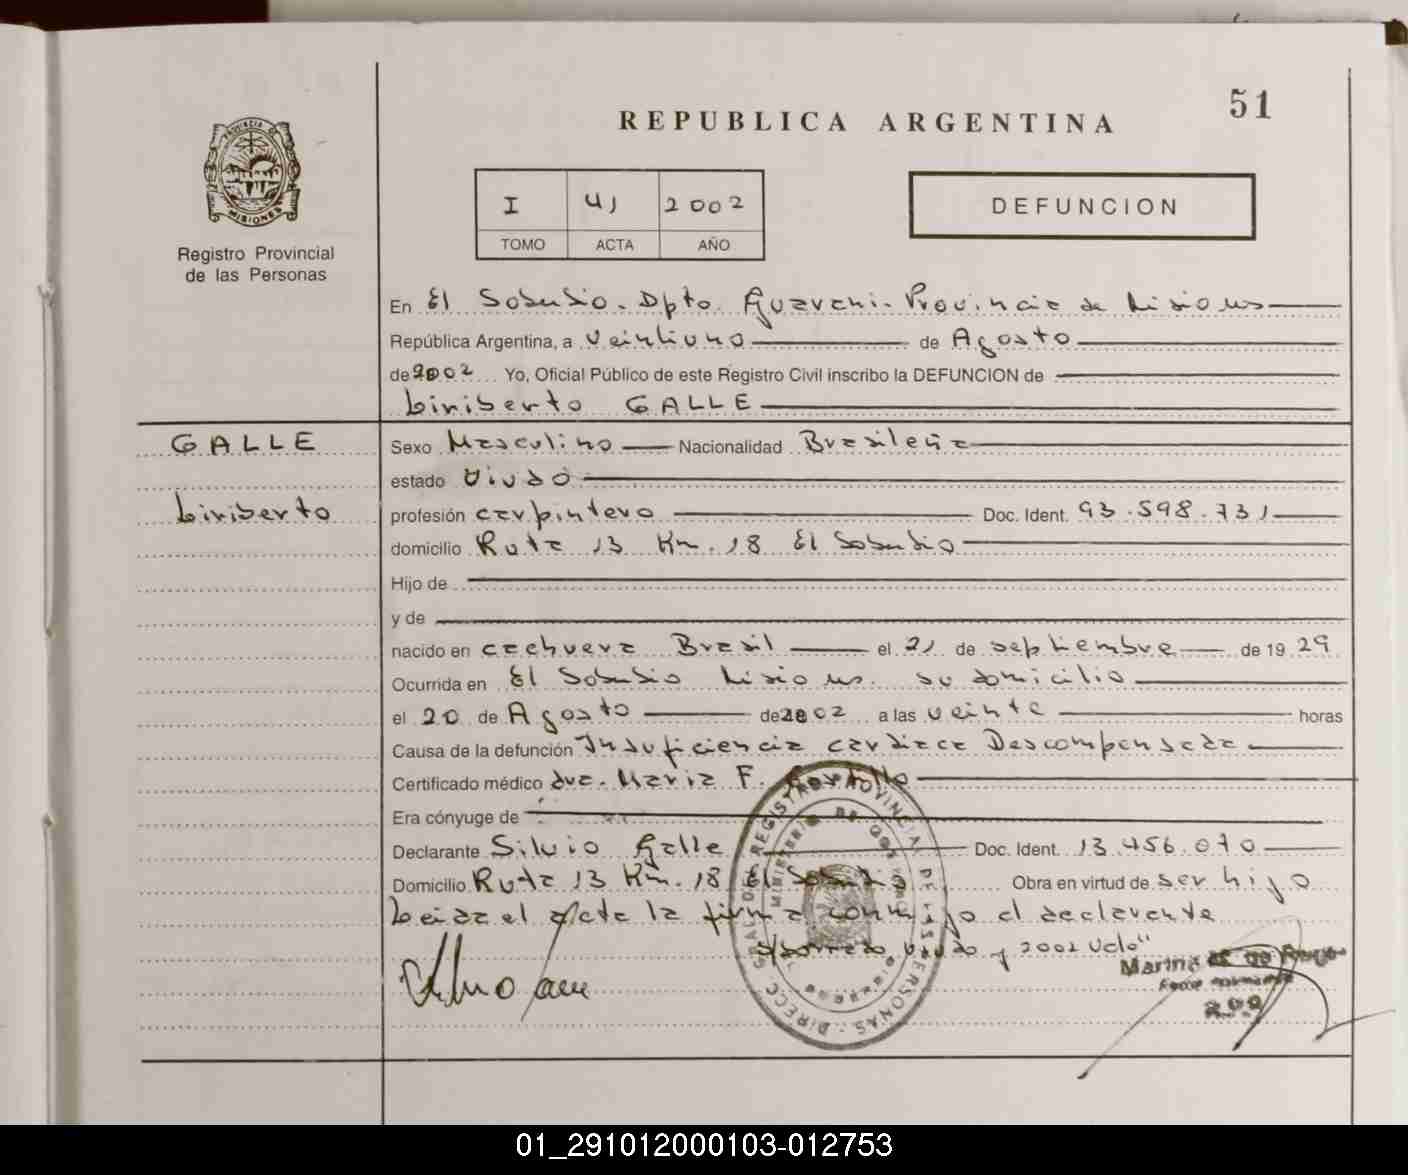 51
REPUBLICA ARGENTINA
PROVINCIA DE
MISIONES
Registro Provincial
de las Personas
I 41 2002
TOMO ACTA AÑO
DEFUNCION
En El Soberbio. Dpto. Guarani. Provincia de Misiones
República Argentina, a veintiuno de Agosto
de 2002 Yo, Oficial Público de este Registro Civil inscribo la DEFUNCION de
Liriberto GALLE
GALLE
Liriberto
Sexo Masculino Nacionalidad Brasileña
estado Viudo
profesión carpintero Doc. Ident. 93.598.731
domicilio Ruta 13 Km. 18 El Soberbio
Hijo de
y de
nacido en cachuera Brasil el 21 de septiembre de 19 29
Ocurrida en El Soberbio Misiones. su domicilio
el 20 de Agosto de 2002 a las veinte horas
Causa de la defunción Insuficiencia cardiaca Descompensada
Certificado médico dra. Maria F.
Era cónyuge de
Declarante Silvio Galle Doc. Ident. 13.456.070
Domicilio Ruta 13 Km. 18 El Soberbio Obra en virtud de ser hijo
Leida el acta la firma conmigo el declarante
s/borrado viudo y 2002 Vale"
Marina
DIRECC. GRAL. DE REGISTRO PROVINCIAL DE LAS PERSONAS
MINISTERIO DE GOBIERNO
01_291012000103-012753